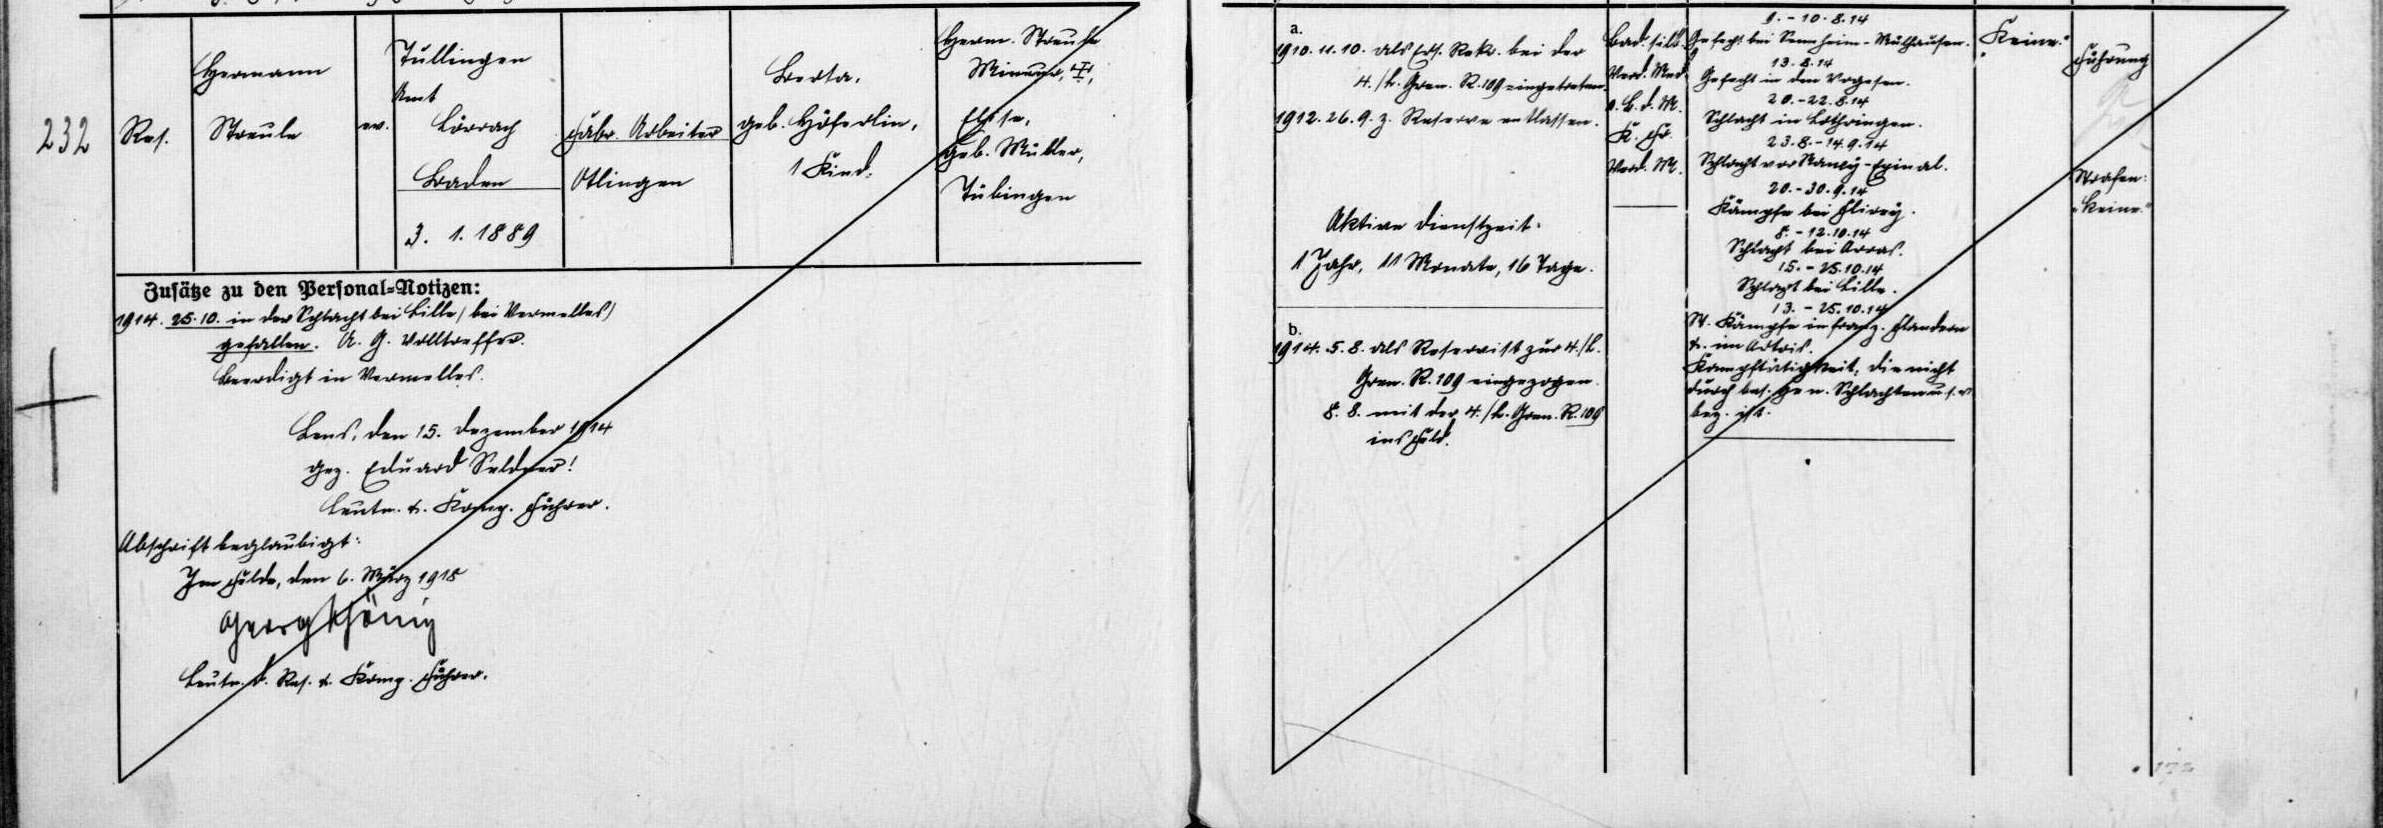 232
Res.
Hermann
Streule
ev.
Tüllingen
Amt
Lörrach
Baden
3. 1. 1889
Fabr. Arbeiter
Ötlingen
Berta,
geb. Höferlin,
1 Kind.
Herm. Streule
Maurer, ‡,
Else,
geb. Müller,
Tübingen
Zusätze zu den Personal-Notizen:
1914. 25.10. in der Schlacht bei Lille (bei Vermelles)
gefallen. A. G. Volltreffer.
Beerdigt in Vermelles.
Lens, den 15. Dezember 1914
gez. Eduard Seldner!
Leutn. u. Komp. Führer.
Abschrift beglaubigt:
Im Felde, den 6. März 1918
Georg König
Leutn. d. Res. u. Komp. Führer.
a.
1910. 11. 10. als Ers. Rekr. bei der
4./L. Gren. R. 109 eingetreten.
1912. 26. 9. z. Reserve entlassen.
Aktive Dienstzeit:
1 Jahr, 11 Monate, 16 Tage.
b.
1914. 5. 8. als Reservist zur 4./L.
Gren. R. 109 eingezogen.
8. 8. mit der 4./L. Gren. R. 109
ins Feld.
Bad. silb.
Verd. Med.
a. B. d. M.
K. Fr.
Verd. M.
9. - 10. 8. 14
Gefecht bei Sennheim - Mülhausen.
13. 8. 14
Gefecht in den Vogesen.
20. - 22. 8. 14
Schlacht in Lothringen.
23. 8. - 14. 9. 14
Schlacht vor Nancy - Epinal.
20. - 30. 9. 14
Kämpfe bei Flirey.
8. - 12. 10. 14
Schlacht bei Arras.
15. - 25. 10. 14
Schlacht bei Lille.
13. - 25. 10. 14
St. Kämpfe in franz. Flandern
u. im Artois.
Kampftätigkeit, die nicht
durch bes. Schlachten u.s.w.
bez. ist.
"Keine."
Führung
Strafen:
"Keine."
172